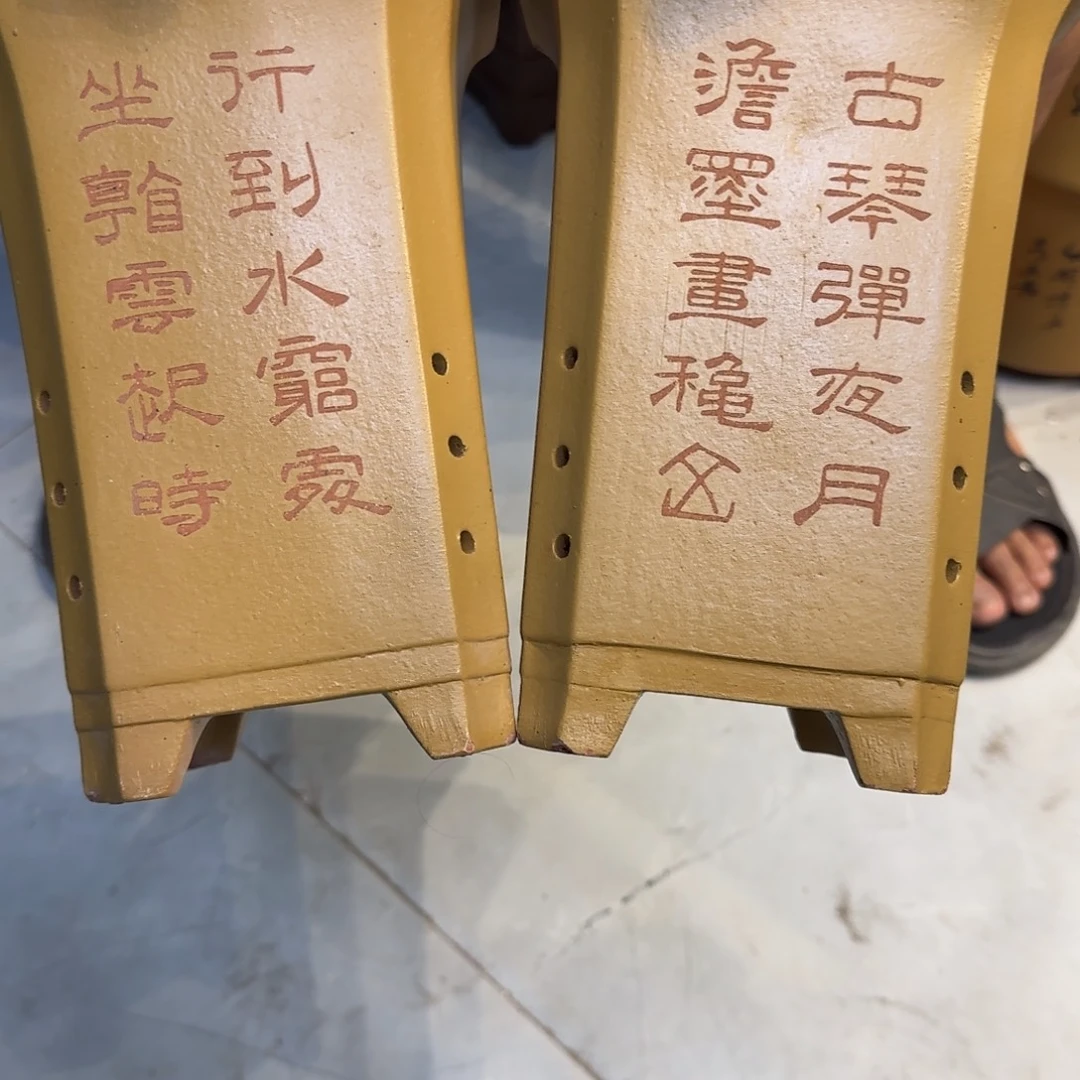 古琴彈夜月
澹墨畫穐
行到水窮處
坐看雲起時